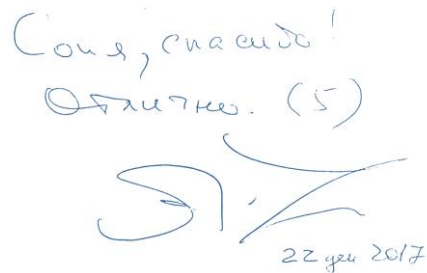 Соня, спасибо!
Отлично. (5)
22 дек 2017